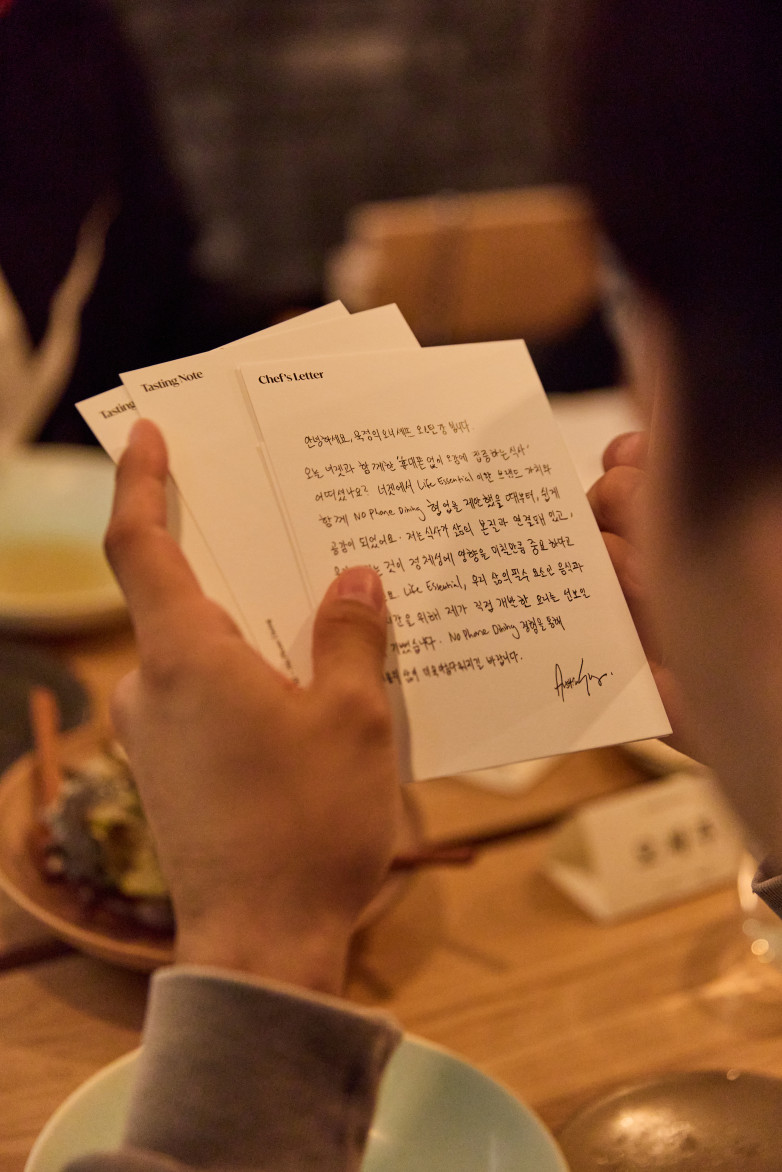 Tasting
Tasting Note
Chef's Letter
안녕하세요, 옥정의 오너셰프 오스틴 강 입니다.
오늘 너겟과 함께한 '휴대폰 없이 오감에 집중하는 식사'
어떠셨나요? 너겟에서 Life Essential 이란 브랜드 가치와
함께 No Phone Dining 협업을 제안했을 때부터, 쉽게
공감이 되었어요. 저는 식사가 삶의 본질과 연결돼 있고,
것이 정체성에 영향을 미칠만큼 중요하다고
Life Essential, 우리 삶의 필수 요소인 음식과
위해 제가 직접 개발한 요리를 선보일
기뻤습니다. No Phone Dining 경험을 통해
삶이 더욱 바랍니다.